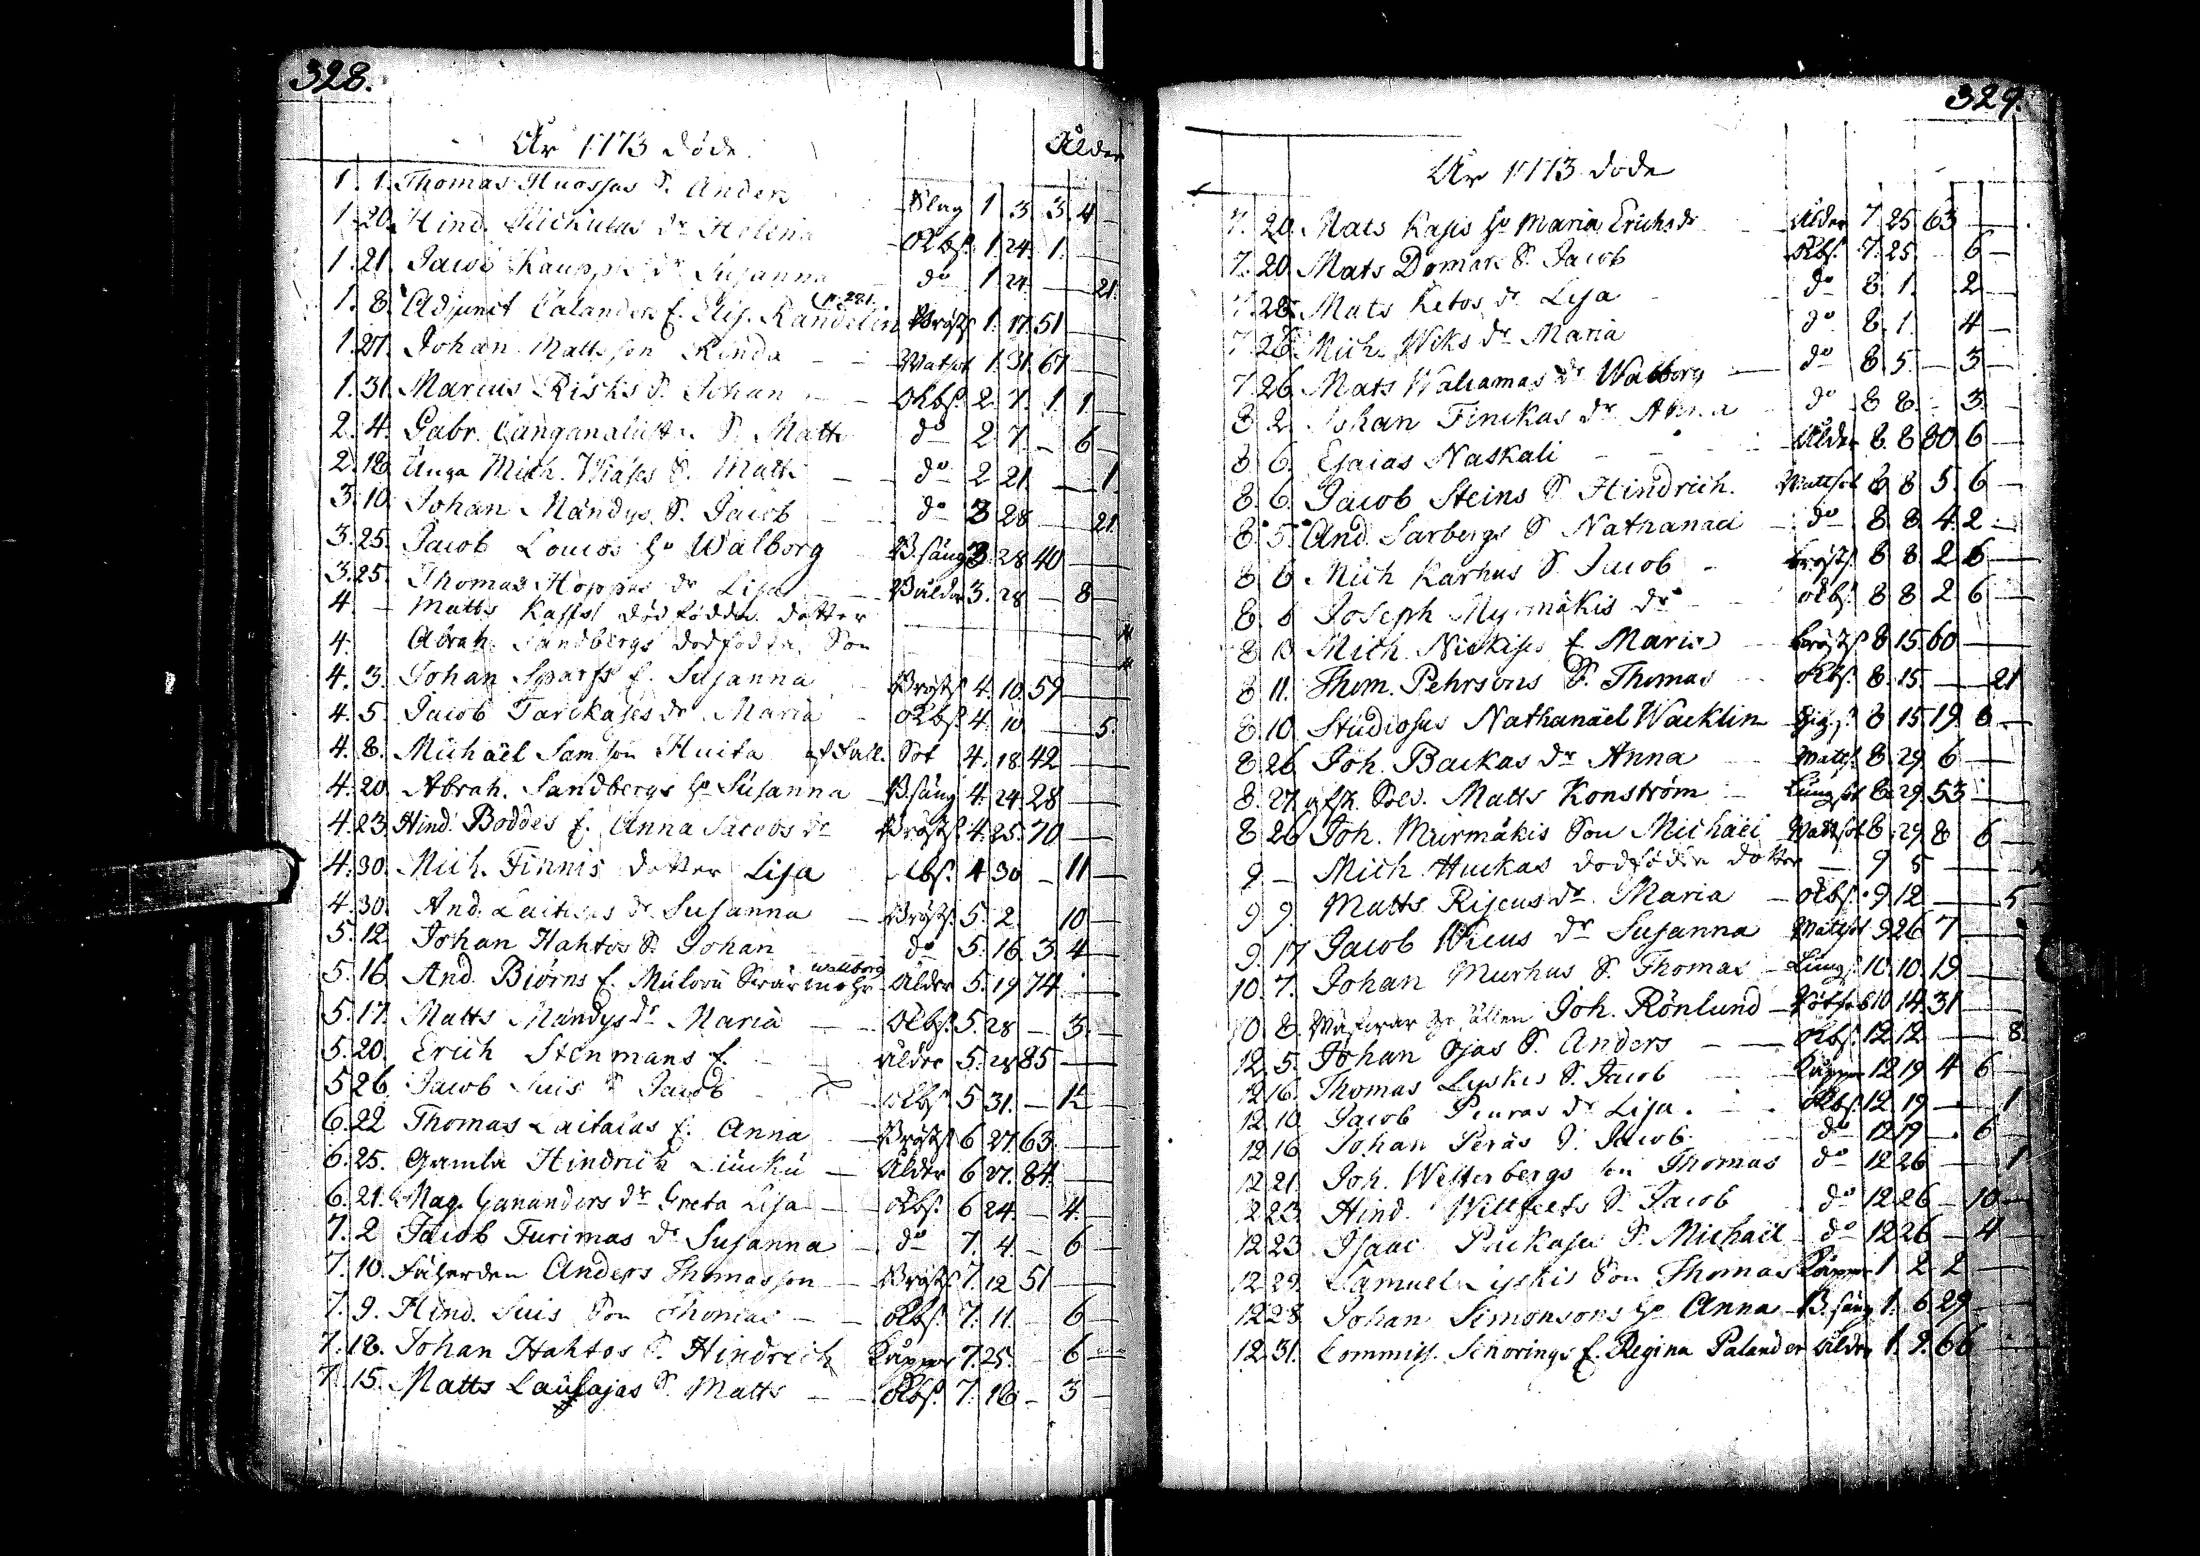 328.
År 1773 döde. Ålder
1. 1. Thomas Huossas S. Anders Slag 1. 3. 3. 4 —
1. 20. Hind. dr Helena Okbs. 1. 24. 1. —
1. 21. Jacob Kauppis dr Susanna do 1. 24. — 21.
1. 8. Adjunct Calanders E. Elis. Randelin (p. 221. Bröstf. 1. 17. 51 —
1. 27. Johan Mattsson Rinda — Watsot 1. 31. 67 —
1. 31. Marcus Risks S. Johan — Okbs. 2. 7. 1. 1 —
2. 4. Gabr. S. Matts do 2. 7. — 6 —
2. 18. Unga Mich. S. Matts — do 2. 21. — 1.
3. 10. Johan Mandys S. Jacob — do 3 28 — 21.
3. 25. Jacob Loucos Ho Walborg B.säng 3. 28 40 —
3. 25. Thomas Hoppas dr Lisa — Bålder 3. 28 — 8 —
4. — Matts Kassis dödfödde dotter
4. Abrah. Sandbergs dödfödda Son
4. 3. Johan Sparfs E. Susanna Bröstf. 4. 10. 59 —
4. 5. Jacob Tarckases dr Maria Okbs. 4. 10 — 5.
4. 8. Michaël Samson Huita af Fall. Sot 4. 18. 42 —
4. 20. Abrah. Sandbergs Ho Susanna — B.säng 4. 24. 28 —
4. 23. Hind. Boddes E. Anna Jacobs dr Bröstf. 4. 25. 70 —
4. 30. Mich. Finnis dotter Lisa Okbs. 4 30 — 11 —
4. 30. And. Laitinas dr Susanna — Bröstf. 5. 2. 10 —
5. 12. Johan Hahtos S. Johan do 5. 16. 3. 4 —
5. 16 And. Biörns E. Wallborg Ålder 5. 19 74 —
5. 17. Matts Mandys dr Maria — Okbs. 5. 28 — 3. —
5. 20. Erich Stenmans E. — Ålder 5. 28 85 —
5 26. Jacob Suis S. Jacob Okbs. 5 31. — 12
6. 22 Thomas Laitaias E. Anna — Bröstf. 6 27. 63. —
6. 25. Gamla Hindrich Liuku — Ålder 6 27. 84. —
6. 21. Mag. Gananders dr Greta Lisa — Okbs. 6 24. — 4. —
7. 2 Jacob Turimas dr Susanna — do 7. 4. — 6 —
7. 10. Anders Thomasson — Bröstf. 7. 12 51 —
7. 9. Hind. Suis Son Thomas — Okbs. 7. 11. — 6 —
7. 18. Johan Hahtos S. Hindrich Kåppor 7. 25. — 6 —
7. 15. Matts Laüsajas S. Matts — Okbs. 7. 18 — 3 —
329.
År 1773 döde
7. 20. Mats Kasis Ho Maria Erichsdr Ålder 7. 25 63 —
7. 20. Mats Domars S. Jacob Okbs. 7. 25. 6 —
7. 28. Mats Ketos dr Lisa do 8. 1. 2 —
7. 28. Mich. Wiks dr Maria do 8. 1. 4 —
7. 26. Mats Waliamas dr Walborg — do 8. 5. — 3 —
8. 2. Johan Finckas dr Anna do 8 8. 3. —
8 6. Esaias Naskali — Ålder 8. 8 80 6 —
8. 6. Jacob Steins S. Hindrich. Wattsot 8. 8 5. 6 —
8. 5. And. Sarbergs S Nathanael do 8. 8. 4. 2 —
8 6. Mich Karhus S. Jacob Bröstf. 8 8. 2 6 —
8. 8 Joseph Nyrmäkis dr Okbs. 8 8 2 6 —
8 13 Mich. Niskises E. Maria Bröstf. 8 15. 60 —
8 11. Thom. Pehrsons S. Thomas Okbs. 8. 15. — 21
8. 10. Studiosus Nathanaël Wacklin 8 15. 19. 6 —
8 26 Joh. Backas dr Anna Watts. 8. 29. 6 —
8. 27. afsk. Sold. Matts Konström Lungsot 8. 29. 53 —
8 26 Joh. Muirmäkis Son Michaël Wattsot 8. 29 8 6 —
9. — Mich. Huckas dödfödde dotter — 9 5 —
9 9. Matts Riscus dr Maria — Okbs. 9 12 — 5
9. 17 Jacob Wicus dr Susanna Watsot 9 26 7 —
10. 7. Johan Murhus S. Thomas Lungs. 10. 10. 19 —
10 8. gesällen Joh. Rönlund — Rötfeb. 10. 14. 31 —
12. 5. Johan Ojas S. Anders — Okbs. 12 12 — 8
12 16. Thomas Lyskis S. Jacob Kåppor 12 19 4 6 —
12. 10 Jacob Peuras dr Lisa. — Okbs. 12. 19 — 1
12 16 Johan Peräs S. Jacob do 12 19 — 6 —
12 21 Joh. Westerbergs son Thomas do 12 26 — 1
12 23. Hind. Willfelts S. Jacob do 12 26 — 10 —
12 23 Isaac Puckases S. Michaël — do 12 26 — 4 —
12 29. Samuel Lyskis Son Thomas Kåppor 1 2 2 —
12 28. Johan Simonsons Ho Anna B.säng 1. 6 29 —
12. 31. Commiss. Schorings E. Regina Palander Ålder 1. 9. 66 —